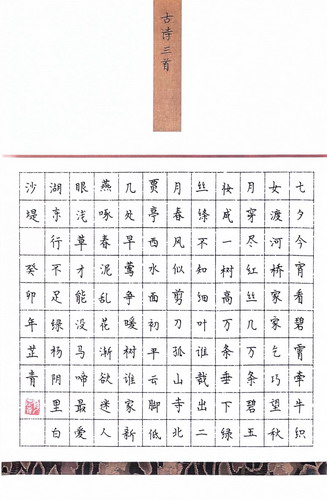 古诗三首
七夕今宵看碧霄牵牛织
女渡河桥家家乞巧望秋
月穿尽红丝几万条碧玉
妆成一树高万条垂下绿
丝绦不知细叶谁裁出二
月春风似剪刀孤山寺北
贾亭西水面初平云脚低
几处早莺争暖树谁家新
燕啄春泥乱花渐欲迷人
眼浅草才能没马蹄最爱
湖东行不足绿杨阴里白
沙堤 癸卯年芷青